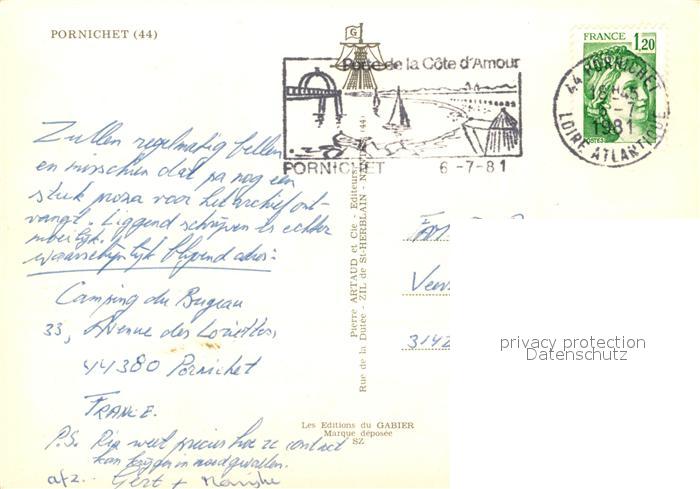 PORNICHET (44)
G
Porte de la Côte d'Amour
PORNICHET 6-7-81
FRANCE 1,20
POSTES
44 PORNICHET
18H45
6-7
1981
LOIRE ATLANTIQUE
Zullen regelmatig bellen
en misschien dat pa nog een
stuk proza voor het archief ont-
vangt. Liggend schrijven is echter
moeilijk.
waarschijnlijk blijvend adres:
Camping du Bugeau
33, Avenue des Loriettes,
44380 Pornichet
FRANCE.
P.S. Ria weet precies hoe ze contact
kan krijgen in noodgevallen.
afz. Gert +
Pierre ARTAUD et Cie - Editeurs
Rue de la Dutée - ZIL de St-HERBLAIN - (44)
Les Editions du GABIER
Marque déposée
SZ
3142
privacy protection
Datenschutz